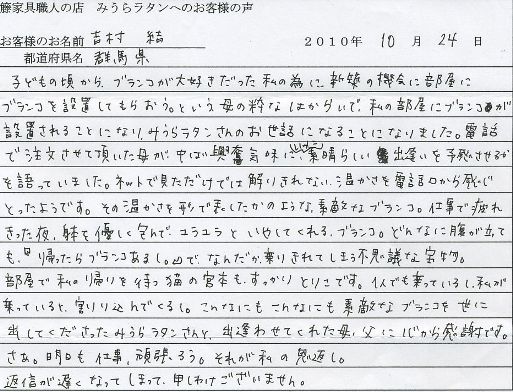 籐家具職人の店　みうらラタンへのお客様の声
お客様のお名前　吉村　結
2010年　10月　24日
都道府県名　群馬県
子どもの頃から、ブランコが大好きだった私の為に、新築の機会に部屋に
ブランコを設置してもらおう。という母の粋なはからいで、私の部屋にブランコが
設置されることになり、みうらラタンさんのお世話になることになりました。電話
で注文させて頂いた母が、中ば興奮気味に、素晴らしい出逢いを予感させるか
を語っていました。ネットで見ただけでは解りきれない、温かさを電話口から感じ
とったようです。その温かさを形で表したかのような、素敵なブランコ。仕事で疲れ
きった夜、躰を優しく包んで、ユラユラといやしてくれる、ブランコ。どんなに腹が立て
も、帰ったらブランコあるし。で、なんだか乗りきれてしまう不思議な宝物。
部屋で私の帰りを待つ猫の宮本も、すっかりとりこです。1人でも乗っているし、私が
乗っていると、割り込んでくるし。こんなにもこんなにも素敵なブランコを世に
出してくださったみうらラタンさんと、出逢わせてくれた母、父に心から感謝です。
さあ。明日も仕事、頑張ろう。それが私の恩返し。
返信が遅くなってしまって、申しわけございません。